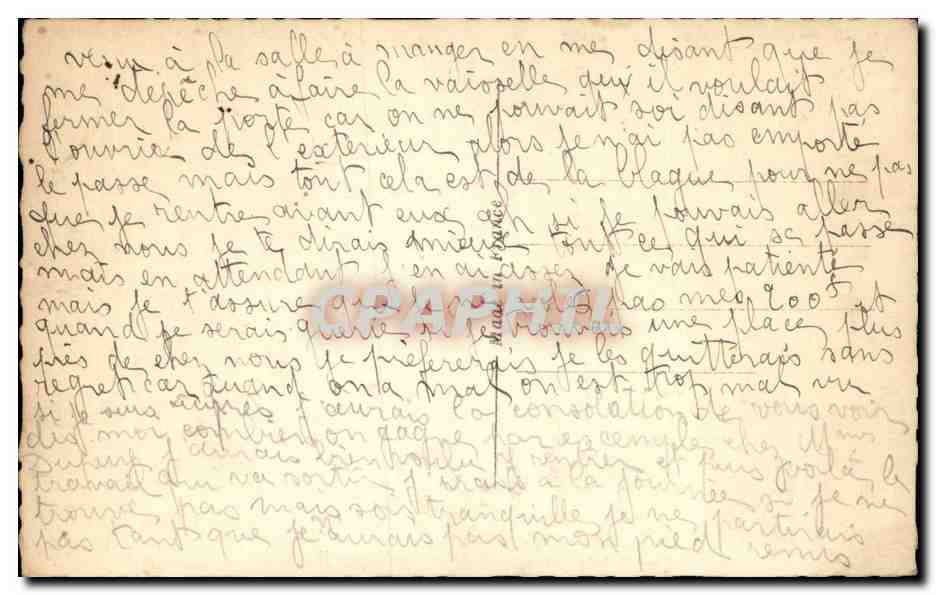 venu à la salle à manger en me disant que je
me dépêche à faire la vaisselle qu'il voulait
fermer la porte car on ne pouvait soi disant pas
l'ouvrir de l'extérieur alors je n'ai pas emporté
le passe mais tout cela est de la blague pour ne pas
que je rentre avant eux si je pouvais aller
chez nous je te dirais mieux tout ce qui se passe
mais en attendant j'en ai assez je vais patienté
mais je t'assure que pas mes 900f et
quand je serais si je trouvais une place plus
près de chez nous je préfererais je les quitterais sans
regret car quand on a mal on est trop mal vu
si je suis j'aurais la consolation de vous voir
dis moi combien on gagne par exemple chez Mmes
Dupuy j'aurais voulu y rentrer et puis voilà le
travail qui va sortir j'irais à la journée si je ne
trouve pas mais sois tranquille je ne partirais
pas tant que je n'aurais pas mon pied remis
Made in France
CPAPHIL